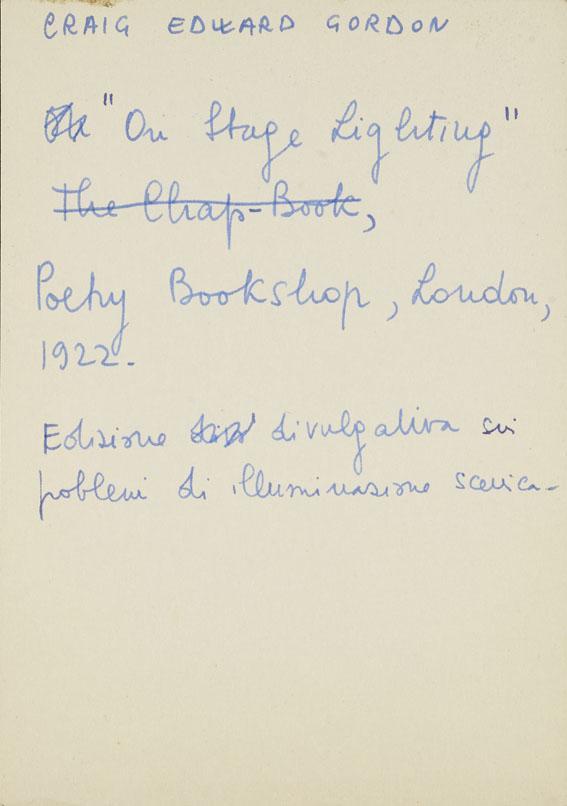 CRAIG EDWARD GORDON
"On Stage Lighting"
The Chap-Book,
Poetry Bookshop, London,
1922.
Edizione divulgativa sui
problemi di illuminazione scenica-